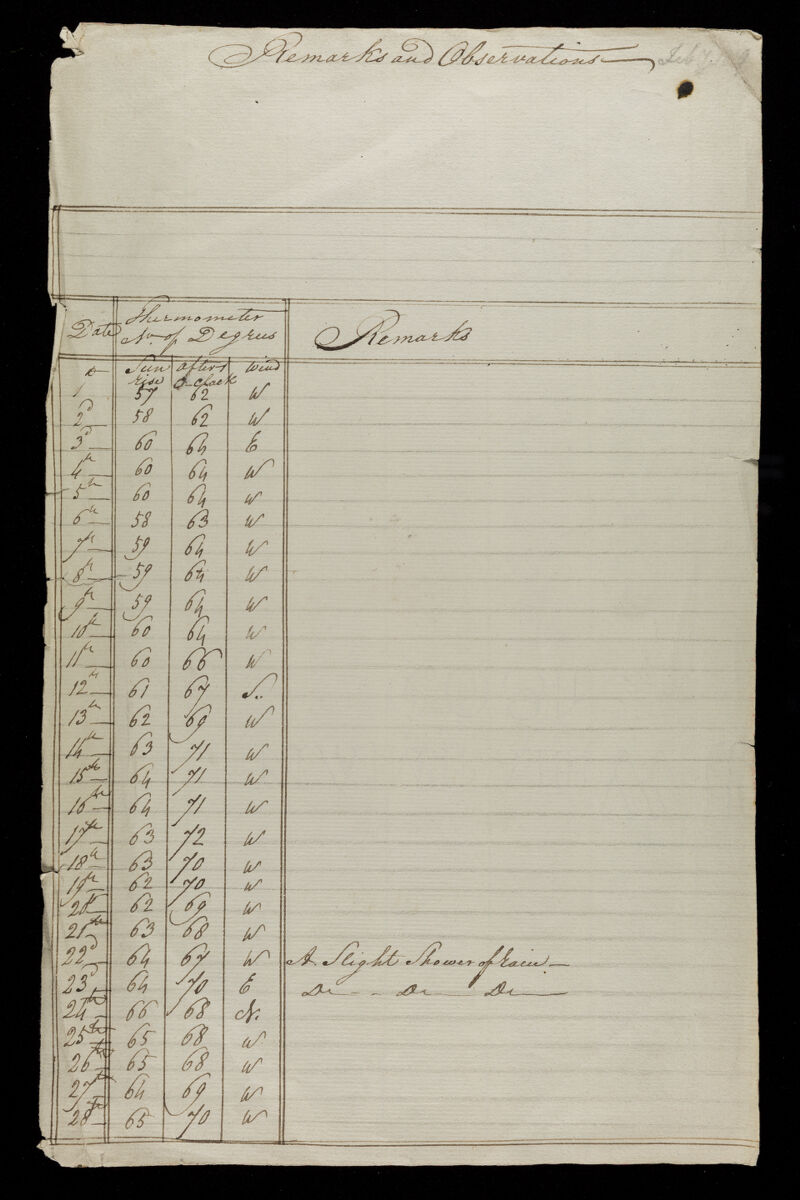 Remarks and Observations
Date
Thermometer
No. of Degrees
Remarks
Sun rise
after O clock
wind
1st 57 62 W
2d 58 62 W
3d 60 64 E
4th 60 64 W
5th 60 64 W
6th 58 63 W
7th 59 64 W
8th 59 64 W
9th 59 64 W
10th 60 64 W
11th 60 66 W
12th 61 67 S..
13th 62 69 W
14th 63 71 W
15th 64 71 W
16th 64 71 W
17th 63 72 W
18th 63 70 W
19th 62 70 W
20th 62 69 W
21th 63 68 W
22d 64 67 W A Slight Shower of rain
23d 64 70 E Do Do Do
24th 66 68 N.
25th 65 68 W
26th 65 68 W
27th 64 69 W
28th 65 70 W